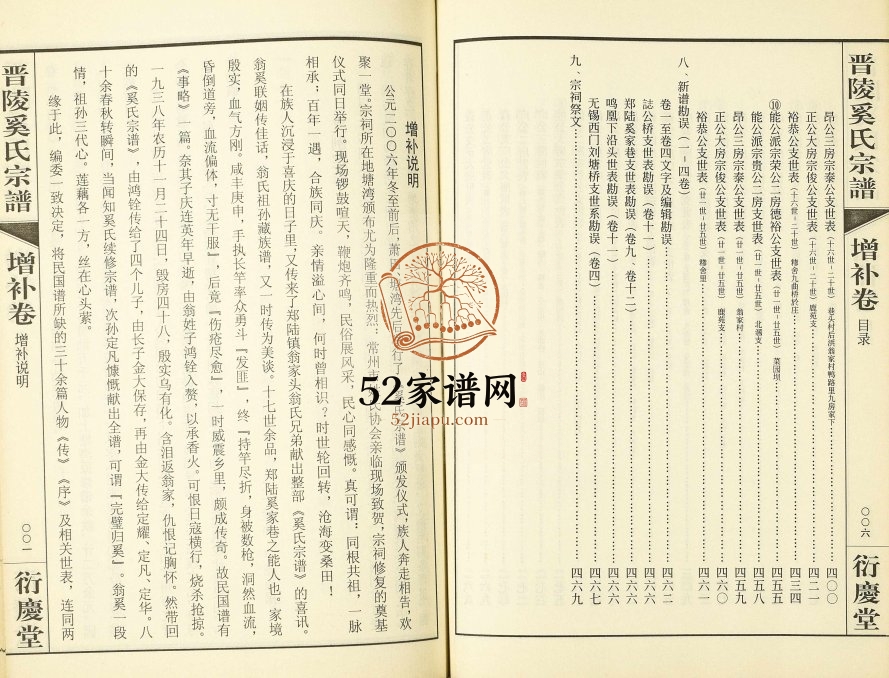 晋陵奚氏宗譜
增补卷
目录
〇〇六
衍慶堂
昂公三房宗泰公支世表（十六世－二十世）巷头村后浜翁家村鸭路里九房家下 四〇〇
正公大房宗俊公支世表（十六世－二十世）鹿苑支 四二一
裕恭公支世表（十六世－二十世）穆舍九曲桥於庄 四三四
⑩能公派宗荣公二房德裕公支世表（廿一世－廿五世）菜园坝 四五五
能公派宗贵公二房支世表（廿一世－廿五世）北漍支 四五八
昂公三房宗泰公支世表（廿一世－廿五世）翁家村 四五九
正公大房宗俊公支世表（廿一世－廿五世）鹿苑支 四六〇
裕恭公支世表（廿一世－廿五世）穆舍里 四六一
八、新谱勘误（一－四卷）
卷一至卷四文字及编辑勘误 四六二
誌公桥支世表勘误（卷十一） 四六六
郑陆奚家巷支世表勘误（卷九、卷十二） 四六六
鸣凰下沿头世表勘误（卷十一） 四六六
无锡西门刘塘桥支世系勘误（卷四） 四六七
九、宗祠祭文 四六九
增补说明
公元二〇〇六年冬至前后，萧 塘湾先后 行了 氏宗谱》颁发仪式，族人奔走相告，欢
聚一堂。宗祠所在地塘湾颁布尤为隆重而热烈：常州市 氏协会亲临现场致贺，宗祠修复的奠基
仪式同日举行。现场锣鼓喧天，鞭炮齐鸣，民俗展风采，民心同感慨。真可谓：同根共祖，一脉
相承，百年一遇，合族同庆。亲情溢心间，何时曾相识？时世轮回转，沧海变桑田！
在族人沉浸于喜庆的日子里，又传来了郑陆镇翁家头翁氏兄弟献出整部《奚氏宗谱》的喜讯。
翁奚联姻传佳话，翁氏祖孙藏族谱，又一时传为美谈。十七世余品，郑陆奚家巷之能人也。家境
殷实，血气方刚。咸丰庚申，手执长竿率众勇斗『发匪』，终『持竿尽折，身被数枪，洞然血流，
昏倒道旁，血流偏体，寸无干服』，后竟『伤疮尽愈』，一时威震乡里，颇成传奇。故民国谱有
《事略》一篇。奈其子庆连英年早逝，由翁姓子鸿铨入赘，以承香火。可恨日寇横行，烧杀抢掠。
一九三八年农历十一月二十四日，毁房四十八，殷实乌有化。含泪返翁家，仇恨记胸怀。然带回
的《奚氏宗谱》，由鸿铨传给了四个儿子，由长子金大保存，再由金大传给定耀、定凡、定华。八
十余春秋转瞬间，当闻知奚氏续修宗谱，次孙定凡慷慨献出全谱，可谓『完璧归奚』。翁奚一段
情，祖孙三代心。莲藕各一方，丝在心头萦。
缘于此，编委一致决定，将民国谱所缺的三十余篇人物《传》《序》及相关世表，连同两
晋陵奚氏宗譜
增补卷
增补说明
〇〇一
衍慶堂
52家谱网
52jiapu.com